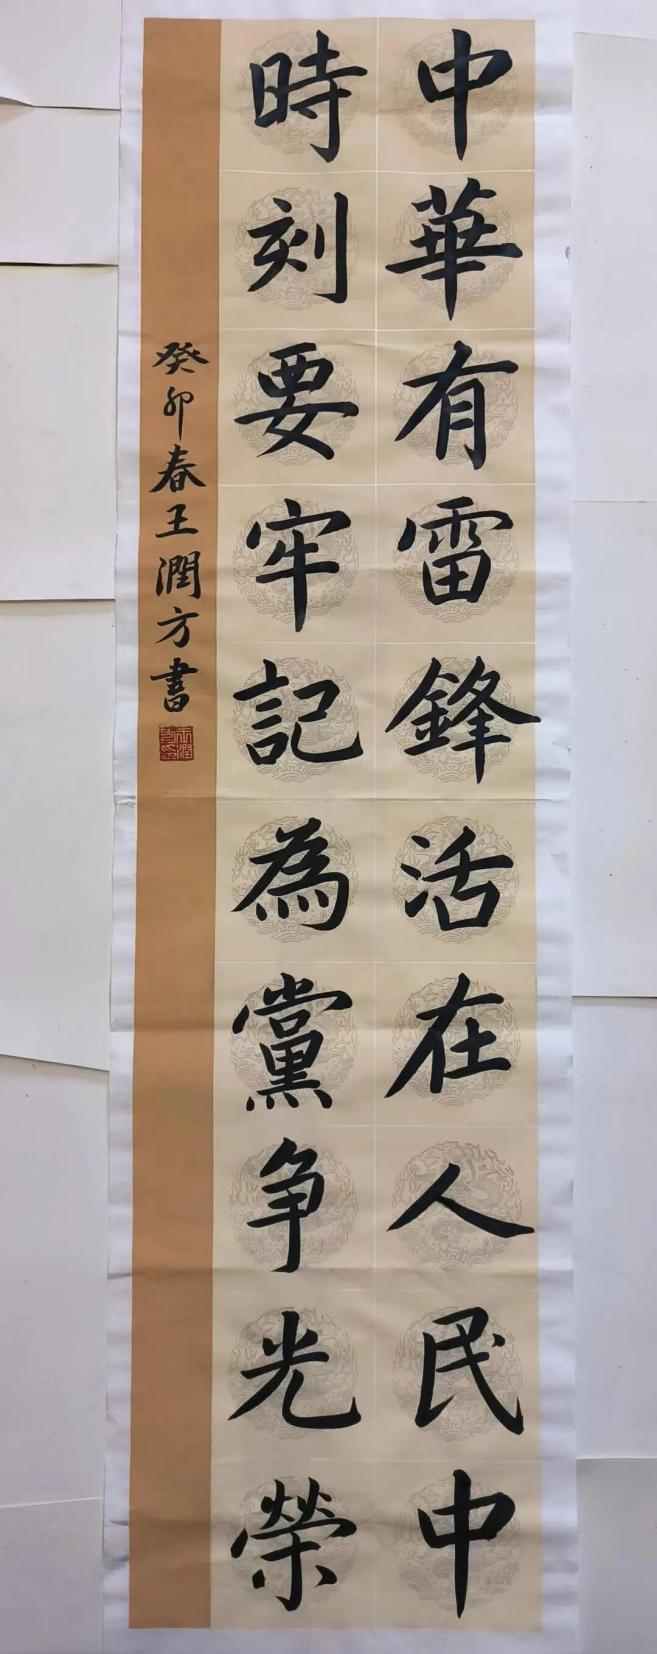 中華有雷鋒活在人民中
時刻要牢記為黨争光榮
癸卯春王潤方書